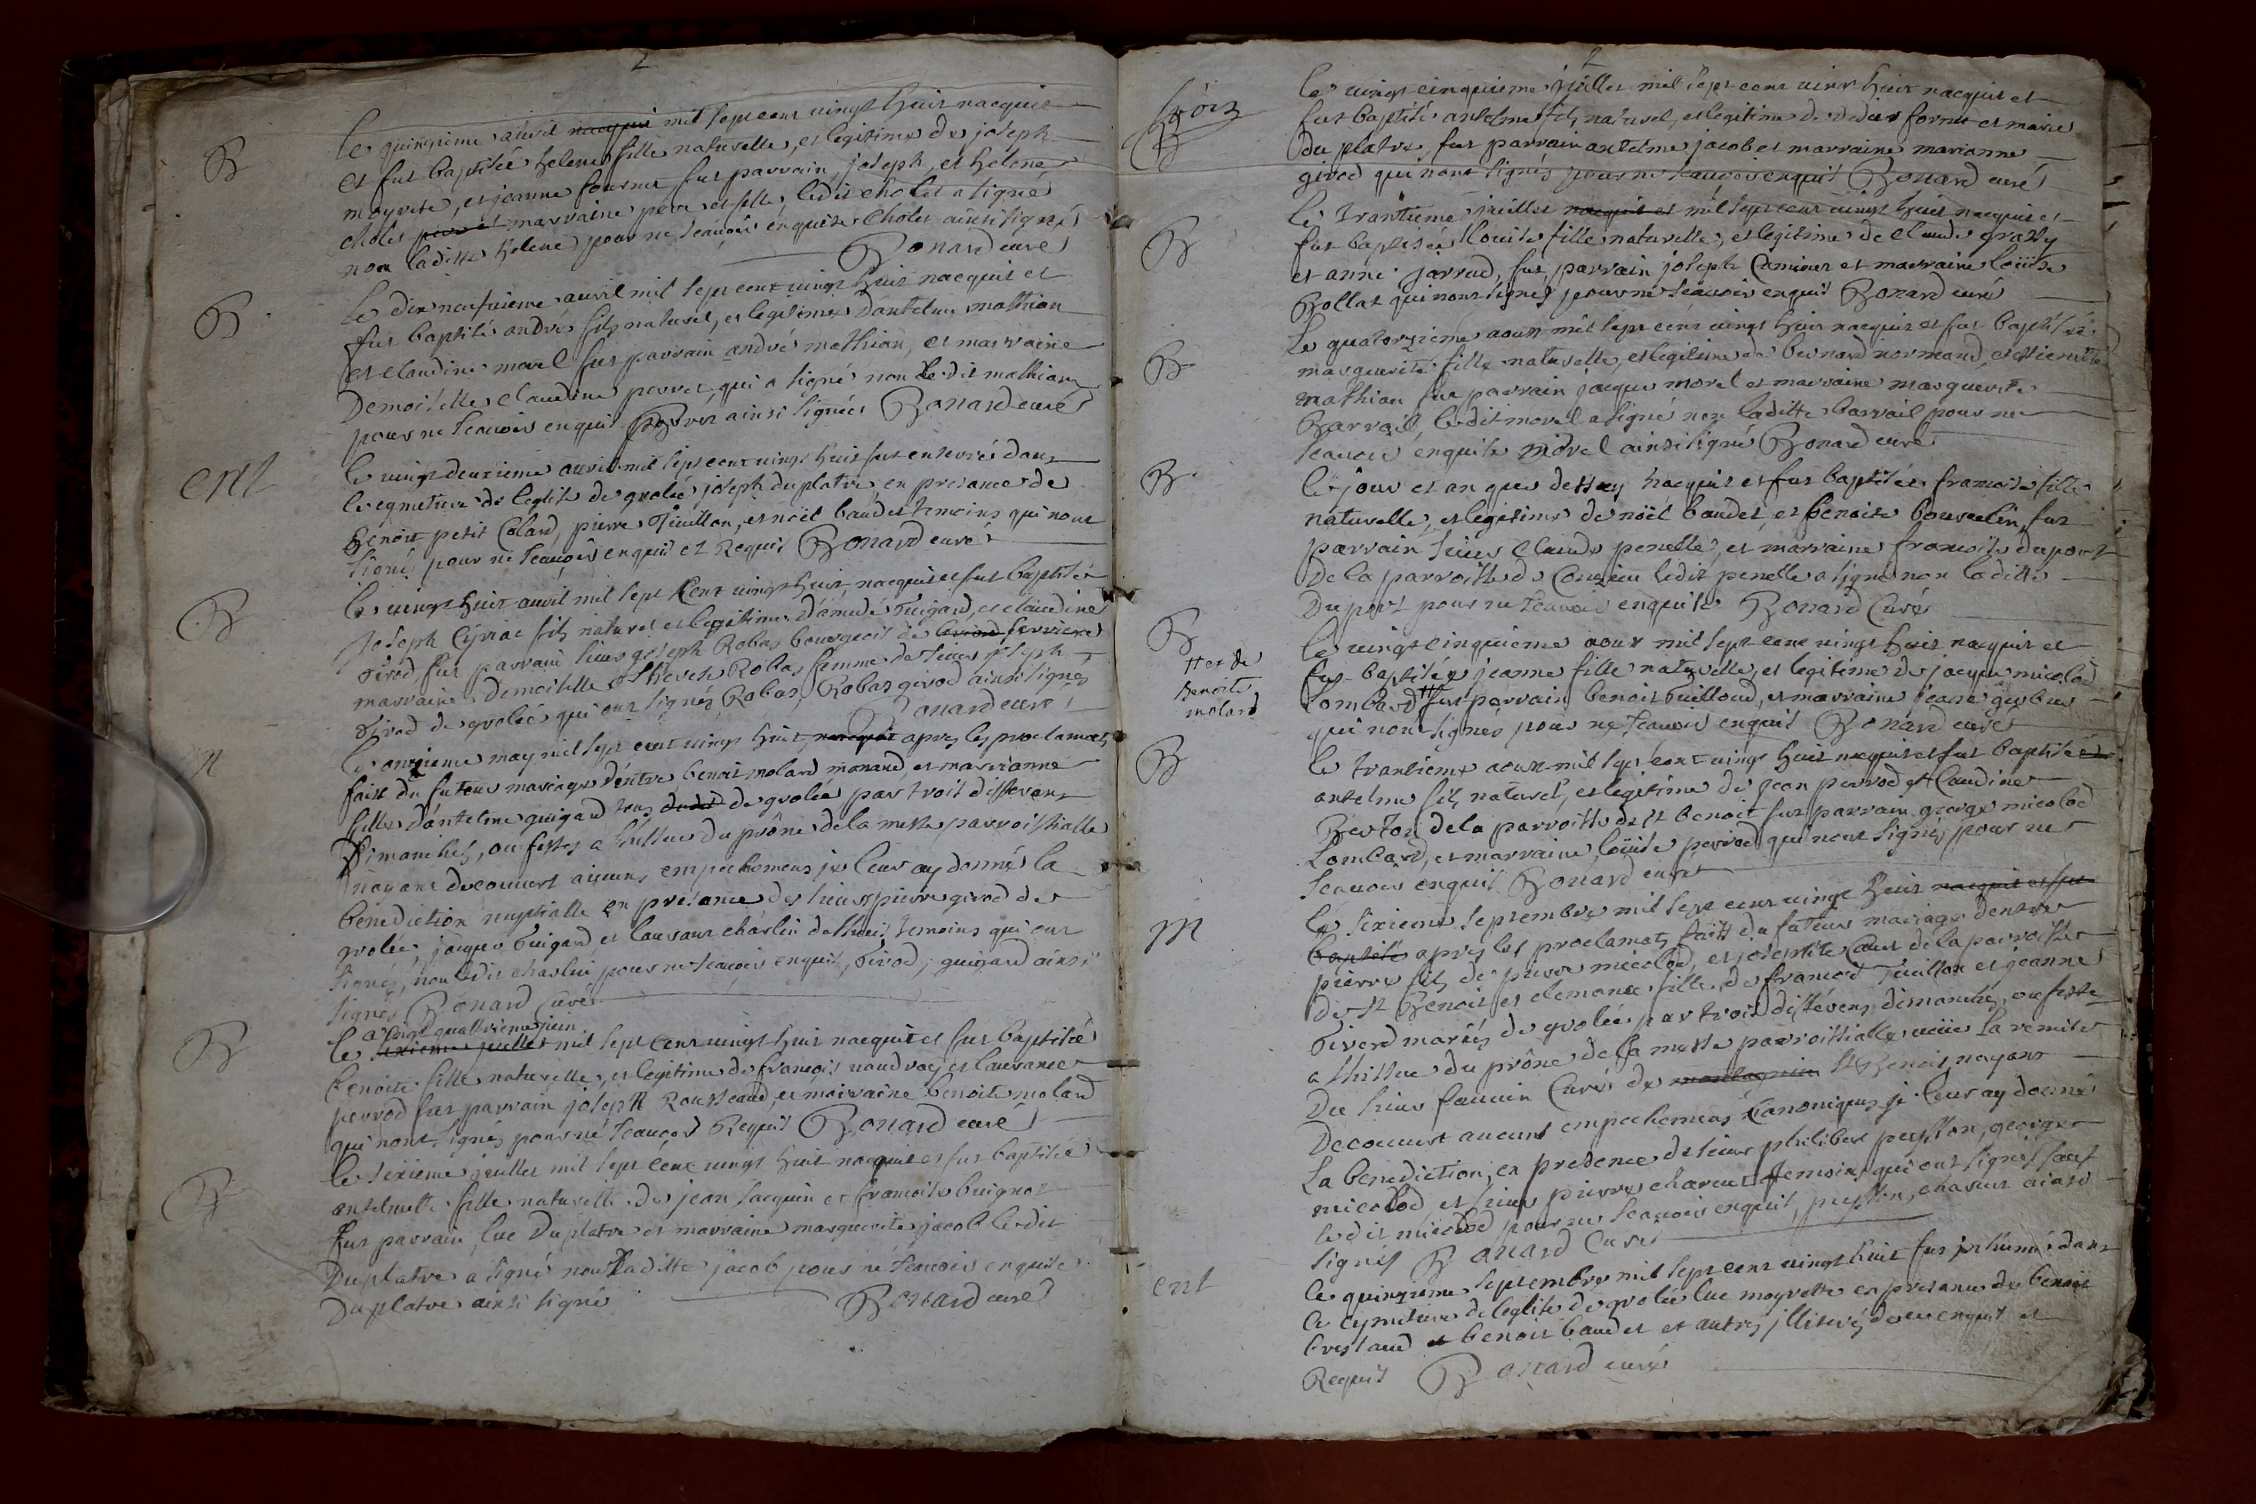 2
B
le quinzieme avril nacquit mil sept cent vingt huit nacquit
et fut baptisée helene fille naturelle, et legitime de joseph
moyrete, et jeanne fournet fut parrain, joseph, et helene
cholet pere et marraine pere et fille, ledit cholet a signé
non laditte helene pour ne sçauoir enquise cholet ainsi signé
Bonard curé
B
le dix neufuieme auril mil sept cent vingt huit nacquit et
fut baptisé andré fils naturel, et legitime d'antelme mathian
et claudine morel fut parrain andré mathian, et marraine
Demoiselle claudine perret qui a signé non ledit mathian
pour ne sçauoir enquit Perret ainsi signée Bonard curé
ent
le vingt deuxieme auril mil sept cent vingt huit fut enterré dans
le cymetiere de l'eglise de grolée joseph duplatre en presance de
benoit petit Colard, pierre Tuillon, et noël baudet temoins qui n'ont
signé pour ne sçauoir enquis et Requis Bonard curé
B
le vingt huit auril mil sept cent vingt huit nacquit et fut baptisé
joseph Cyriac fils naturel et legitime d'amedé guigard, et claudine
girod, fut parrain sieur joseph Robas bourgeois de ferriere
marraine demoiselle therese Robas femme de sieur joseph
girod de grolée qui ont signés Robas, Robas girod ainsi signés
Bonard curé
M
le onzieme may mil sept cent vingt huit, nacquit apres les proclamats
faits du futeur mariage d'entre benoit molard monard, et marianne
fille d'antelme guigard tous dudit de grolée par trois differens
Dimanches, ou festes a l'issue du prône de la messe parroissialle
n'ayant decouuert aucuns empechemens je leur ay donné la
benediction nuptialle en presance de sieur pierre girod de
grolée, jacques guigard et laurans charlin de temoins qui ont
signés, non ledit charlin pour ne sçauoir enquis, girod, guigard ainsi
signés Bonard Curé
B
vingt quattrieme juin
le sixieme juillet mil sept cent vingt huit nacquit et fut baptisée
benoite fille naturelle, et legitime de françois naudray et laurance
perrod fut parrain joseph Rousseaud, et marraine benoite molard
qui n'ont signés pour ne sçauoir Requis Bonard curé
B
le sixieme juillet mil sept cent vingt huit nacquit et fut baptisée
antelmette fille naturelle de jean jacquin et françoise buignot
fut parrain, luc Duplatre et marraine marguerite jacob ledit
Duplatre a signé non laditte jacob pour ne sçauoir enquise
Duplatre ainsi signé Bonard curé
2
B
le vingt cinquieme juillet mil sept cent vingt huit nacquit et
fut baptisé antelme fils naturel, et legitime de didier fornet et marie
du platre, fut parrain antelme jacob et marraine marianne
girod qui n'ont signés pour ne sçauoir enquis Bonard curé
B
le trantieme juillet nacquit et mil sept cent vingt huit nacquit et
fut baptisée louise fille naturelle, et legitime de claude grassy
et anne jarrod, fut parrain joseph Camour et marraine loüise
Bollat qui n'ont signés pour ne sçauoir enquis Bonard curé
B
le quatorzieme aoust mil sept cent vingt huit nacquit et fut baptisée
marguerite fille naturelle, et legitime de bernard normand et
mathian fut parrain jacque morel et marraine marguerite
Barrail, ledit morel a signé non laditte barrail pour ne
sçauoir enquise morel ainsi signé Bonard curé
B
le jour et an que dessus nacquit et fut baptisée francoise fille
naturelle, et legitime de nöel baudet, et benoite bourcelin, fut
parrain sieur Claude penelle, et marraine francoise dupont
De la parroisse de Conzieu ledit penelle a signé non laditte
Dupont pour ne sçauoir enquise Bonard Curé
B
tt et de
benoite
molard
le vingt cinquieme aoust mil sept cent vingt huit nacquit et
fut baptisée jeanne fille naturelle, et legitime de jacque micolod
Lombard tt fut parrain benoit builloud, et marraine jeane gerbus
qui n'ont signés pour ne sçauoir enquis Bonard curé
B
le trantieme aoust mil sept cent vingt huit nacquit et fut baptisé
antelme fils naturel, et legitime de jean perrod et Claudine
Berton de la parroisse de st benoit fut parrain george micolod
Lombard, et marraine loüise perrod qui n'ont signés pour ne
sçauoir enquis Bonard curé
M
le sixieme septembre mil sept cent vingt huit nacquit et fut
baptisé apres les proclamats faits du futeur mariage d'entre
pierre fils de pierre micolod, et josepte de la parroisse
de st Benoit et clemance fille de francois Tuillon et jeanne
giverd mariés de grolée par trois differens dimanches, ou festes
a l'hissue du prône de la messe parroissialle, veüe la remise
Du sieur fauuin Curé de st Benoit, n'ayant
Decouuert aucuns empechemens Canoniques je leur ay donné
La benediction, en presence de sieur philibert peysson, george
micolod et sieur pierre temoins qui ont signés sauf
ledit micolod pour ne sçauoir enquis, peysson, ainsi
signés Bonard Curé
ent
le quinzieme septembre mil sept cent vingt huit fut jnhumé dans
le cymetiere de l'eglise de grolée luc moyrette en presance de benoit
brestaud et benoit baudet et autres jlliterés de ce enquis et
Requis Bonard curé